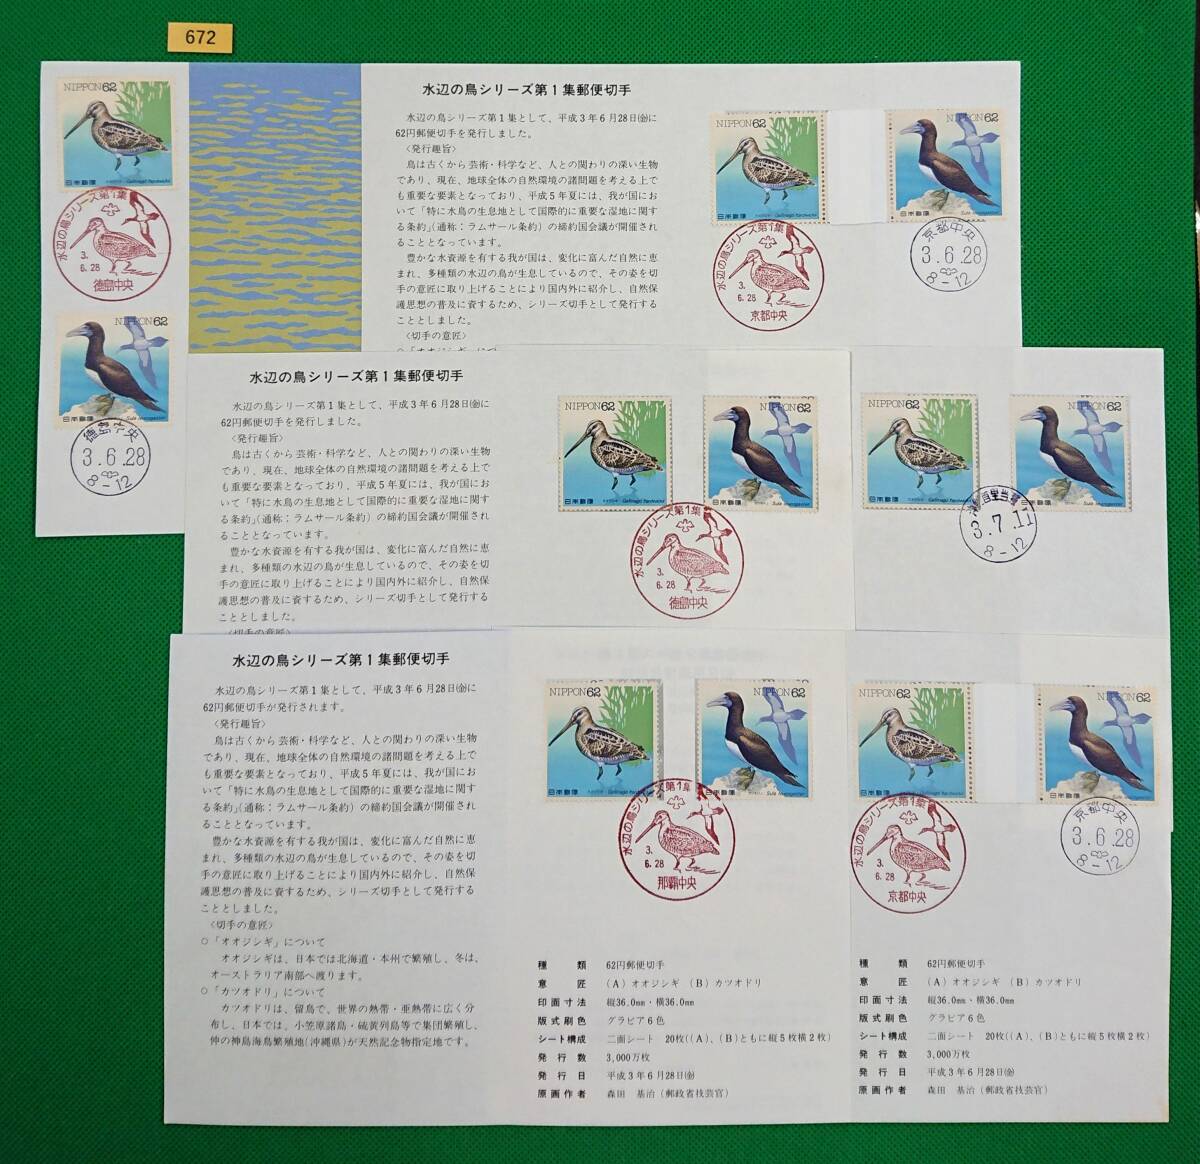 672
NIPPON62
日本郵便
水辺の鳥シリーズ第1集
3.
6.28
徳島中央
NIPPON62
日本郵便
徳島中央
3.6.28
8-12
水辺の鳥シリーズ第1集郵便切手
水辺の鳥シリーズ第1集として、平成3年6月28日㈮に
62円郵便切手を発行しました。
〈発行趣旨〉
鳥は古くから芸術・科学など、人との関わりの深い生物
であり、現在、地球全体の自然環境の諸問題を考える上で
も重要な要素となっており、平成5年夏には、我が国にお
いて「特に水鳥の生息地として国際的に重要な湿地に関す
る条約」(通称:ラムサール条約)の締約国会議が開催され
ることとなっています。
豊かな水資源を有する我が国は、変化に富んだ自然に恵
まれ、多種類の水辺の鳥が生息しているので、その姿を切
手の意匠に取り上げることにより国内外に紹介し、自然保
護思想の普及に資するため、シリーズ切手として発行する
こととしました。
〈切手の意匠〉
NIPPON62
日本郵便
NIPPON62
日本郵便
水辺の鳥シリーズ第1集
3.
6.28
京都中央
京都中央
3.6.28
8-12
水辺の鳥シリーズ第1集郵便切手
水辺の鳥シリーズ第1集として、平成3年6月28日㈮に
62円郵便切手を発行しました。
〈発行趣旨〉
鳥は古くから芸術・科学など、人との関わりの深い生物
であり、現在、地球全体の自然環境の諸問題を考える上で
も重要な要素となっており、平成5年夏には、我が国にお
いて「特に水鳥の生息地として国際的に重要な湿地に関す
る条約」(通称:ラムサール条約)の締約国会議が開催され
ることとなっています。
豊かな水資源を有する我が国は、変化に富んだ自然に恵
まれ、多種類の水辺の鳥が生息しているので、その姿を切
手の意匠に取り上げることにより国内外に紹介し、自然保
護思想の普及に資するため、シリーズ切手として発行する
こととしました。
〈切手の意匠〉
NIPPON62
日本郵便
NIPPON62
日本郵便
水辺の鳥シリーズ第1集
3.
6.28
徳島中央
NIPPON62
日本郵便
NIPPON62
3.7.11
8-12
水辺の鳥シリーズ第1集郵便切手
水辺の鳥シリーズ第1集として、平成3年6月28日㈮に
62円郵便切手が発行されます。
〈発行趣旨〉
鳥は古くから芸術・科学など、人との関わりの深い生物
であり、現在、地球全体の自然環境の諸問題を考える上で
も重要な要素となっており、平成5年夏には、我が国にお
いて「特に水鳥の生息地として国際的に重要な湿地に関す
る条約」(通称:ラムサール条約)の締約国会議が開催され
ることとなっています。
豊かな水資源を有する我が国は、変化に富んだ自然に恵
まれ、多種類の水辺の鳥が生息しているので、その姿を切
手の意匠に取り上げることにより国内外に紹介し、自然保
護思想の普及に資するため、シリーズ切手として発行する
こととしました。
〈切手の意匠〉
○「オオジシギ」について
オオジシギは、日本では北海道・本州で繁殖し、冬は、
オーストラリア南部へ渡ります。
○「カツオドリ」について
カツオドリは、留鳥で、世界の熱帯・亜熱帯に広く分
布し、日本では、小笠原諸島・硫黄列島等で集団繁殖し、
仲の神島海鳥繁殖地(沖縄県)が天然記念物指定地です。
NIPPON62
日本郵便
NIPPON62
日本郵便
水辺の鳥シリーズ第1集
3.
6.28
那覇中央
種類 62円郵便切手
意匠 (A)オオジシギ (B)カツオドリ
印面寸法 縦36.0mm・横36.0mm
版式刷色 グラビア6色
シート構成 二面シート 20枚((A)、(B)ともに縦5枚横2枚)
発行数 3,000万枚
発行日 平成3年6月28日㈮
原画作者 森田 基治(郵政省技芸官)
NIPPON62
日本郵便
NIPPON62
日本郵便
水辺の鳥シリーズ第1集
3.
6.28
京都中央
京都中央
3.6.28
8-12
種類 62円郵便切手
意匠 (A)オオジシギ (B)カツオドリ
印面寸法 縦36.0mm・横36.0mm
版式刷色 グラビア6色
シート構成 二面シート 20枚((A)、(B)ともに縦5枚横2枚)
発行数 3,000万枚
発行日 平成3年6月28日㈮
原画作者 森田 基治(郵政省技芸官)